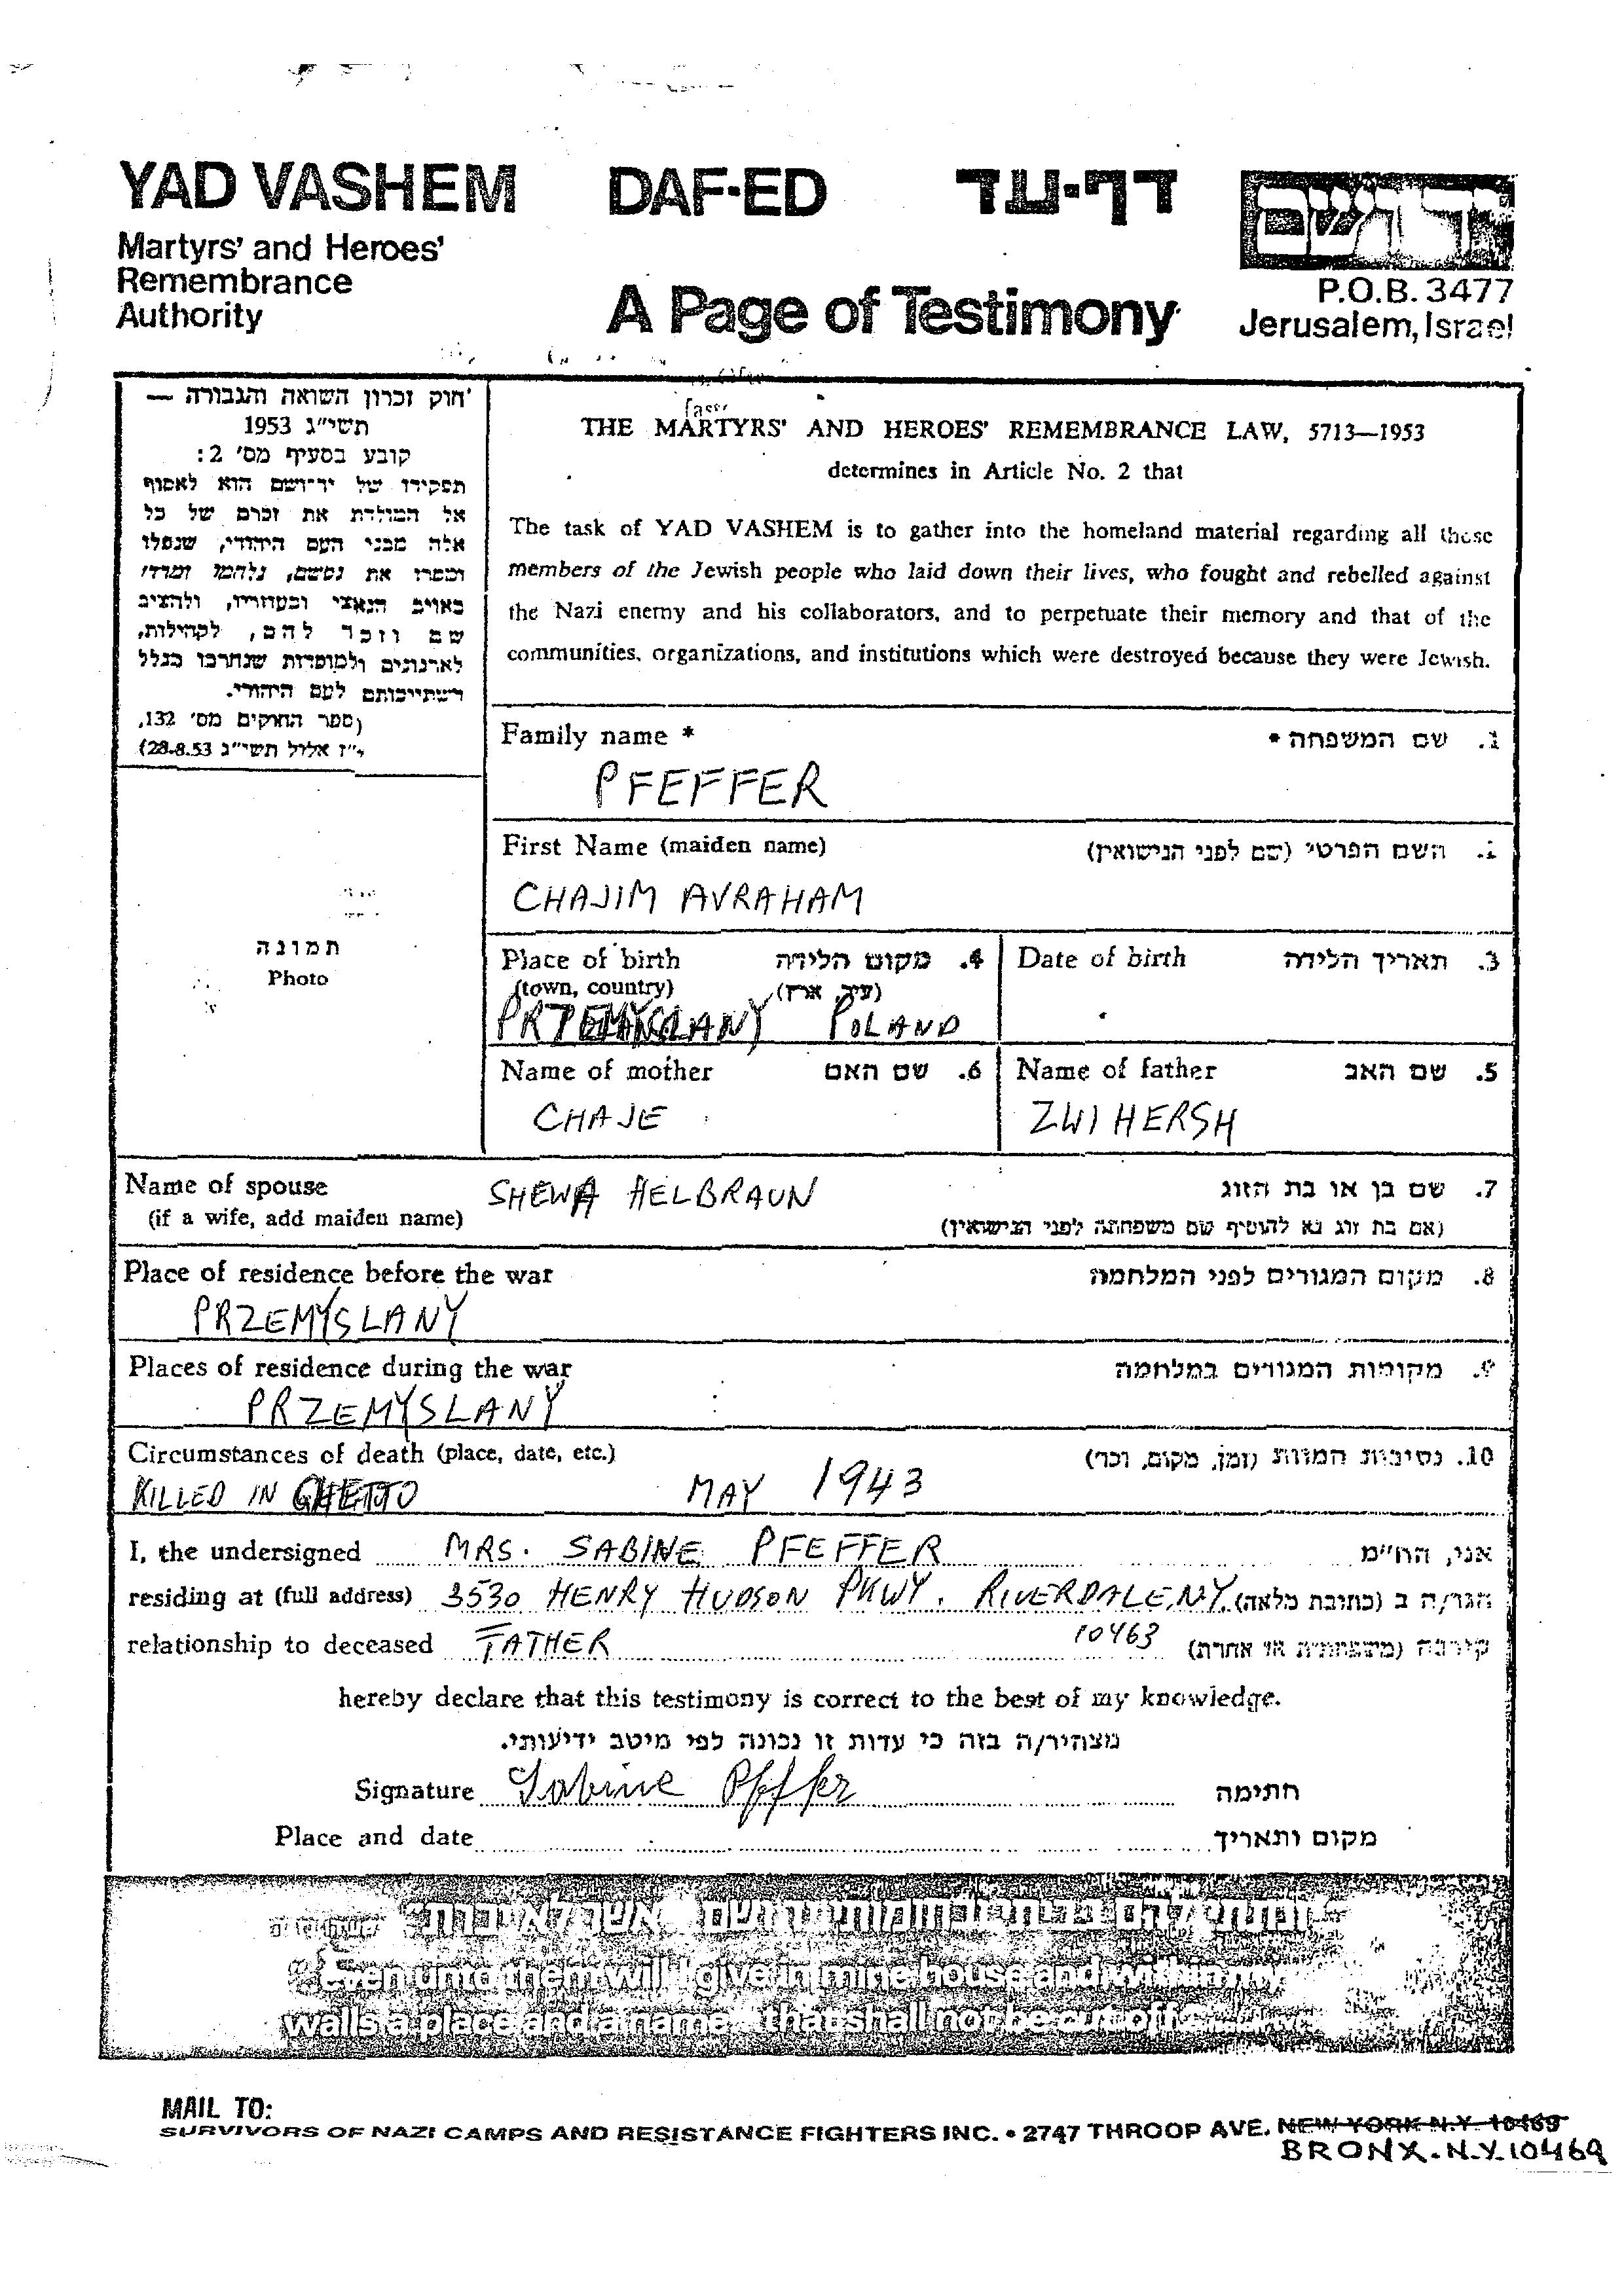 YAD VASHEM DAF-ED דף-עד
Martyrs' and Heroes'
Remembrance
Authority
A Page of Testimony
P.O.B. 3477
Jerusalem, Israel
חוק זכרון השואה והגבורה —
תשי"ג 1953
קובע בסעיף מס' 2:
תפקידו של יד-ושם הוא לאסוף
אל המולדת את זכרם של כל
אלה מבני העם היהודי, שנפלו
ומסרו את נפשם, נלחמו ומרדו
באויב הנאצי ובעוזריו, ולהציב
שם וזכר להם, לקהילות,
לארגונים ולמוסדות שנחרבו בגלל
השתייכותם לעם היהודי.
(ספר החוקים מס' 132,
י"ז אלול תשי"ג 28.8.53)
THE MARTYRS' AND HEROES' REMEMBRANCE LAW, 5713—1953
determines in Article No. 2 that
The task of YAD VASHEM is to gather into the homeland material regarding all those
members of the Jewish people who laid down their lives, who fought and rebelled against
the Nazi enemy and his collaborators, and to perpetuate their memory and that of the
communities, organizations, and institutions which were destroyed because they were Jewish.
Family name * 1. שם המשפחה *
PFEFFER
First Name (maiden name) השם הפרטי (שם לפני הנישואין)
CHAJIM AVRAHAM
תמונה
Photo
Place of birth 4. מקום הלידה
(town, country) (עיר, ארץ)
PRZEMYSLANY POLAND
Date of birth 3. תאריך הלידה
Name of mother 6. שם האם
CHAJE
Name of father 5. שם האב
ZWI HERSH
Name of spouse SHEWA HELBRAUN 7. שם בן או בת הזוג
(if a wife, add maiden name) (אם בת זוג נא להוסיף שם משפחתה לפני הנישואין)
Place of residence before the war 8. מקום המגורים לפני המלחמה
PRZEMYSLANY
Places of residence during the war 9. מקומות המגורים במלחמה
PRZEMYSLANY
Circumstances of death (place, date, etc.) 10. נסיבות המוות (זמן, מקום, וכו')
KILLED IN GHETTO MAY 1943
I, the undersigned MRS. SABINE PFEFFER אני, הח"מ
residing at (full address) 3530 HENRY HUDSON PKWY. RIVERDALE, N.Y. הגר/ה ב (כתובת מלאה)
relationship to deceased FATHER 10463 קירבה (משפחתית או אחרת)
hereby declare that this testimony is correct to the best of my knowledge.
מצהיר/ה בזה כי עדות זו נכונה לפי מיטב ידיעותי.
Signature Sabine Pfeffer חתימה
Place and date מקום ותאריך
ונתתי להם בביתי ובחומותי יד ושם אשר לא יכרת
Even unto them will I give in mine house and within my
walls a place and a name that shall not be cut off
MAIL TO:
SURVIVORS OF NAZI CAMPS AND RESISTANCE FIGHTERS INC. • 2747 THROOP AVE. NEW YORK N.Y. 10469
BRONX. N.Y. 10469